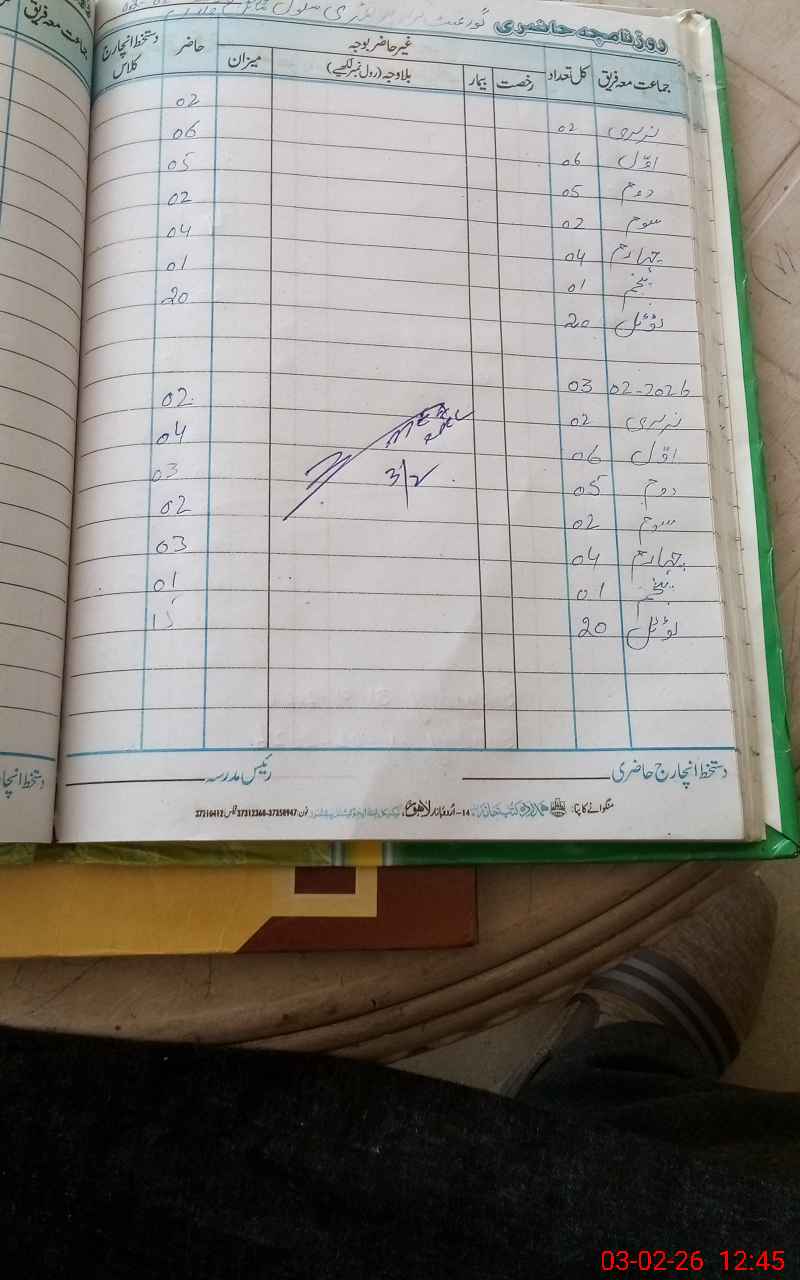 روزنامچہ حاضری گورنمنٹ
جماعت معہ فریق کل تعداد غیر حاضر بوجہ حاضر دستخط انچارج کلاس
رخصت بیمار بلاوجہ (رول نمبر لکھیے) میزان
نرسری 02 02
اوّل 06 06
دوم 05 05
سوم 02 02
چہارم 04 04
پنجم 01 01
ٹوٹل 20 20
03 02-2026
نرسری 02 02
اوّل 06 04
دوم 05 03
سوم 02 02
چہارم 04 03
پنجم 01 01
ٹوٹل 20 15
3/2
دستخط انچارج حاضری رئیس مدرسہ
منگوانے کا پتا: ہمدرد کتب خانہ 14-اُردو بازار لاہور
فون: 37312360-37358947 فیکس: 37210412
جماعت معہ فریق
دستخط انچارج
03-02-26 12:45